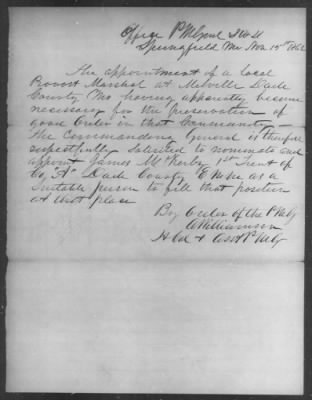 Office P M Genl
Springfield Mo Nov 15th 1862
The appointment of a Local
Provost Marshal at Melville Dade
County Mo having apparently become
necessary for the preservation of
good order in that Community
The Commanding General is therefore
respectfully solicited to nominate and
appoint James M Kerby 1st Lieut of
Co "A" Dade County E M M as a
suitable person to fill that position
at that place
By Order of the P M G
Williamson
& Asst P M G